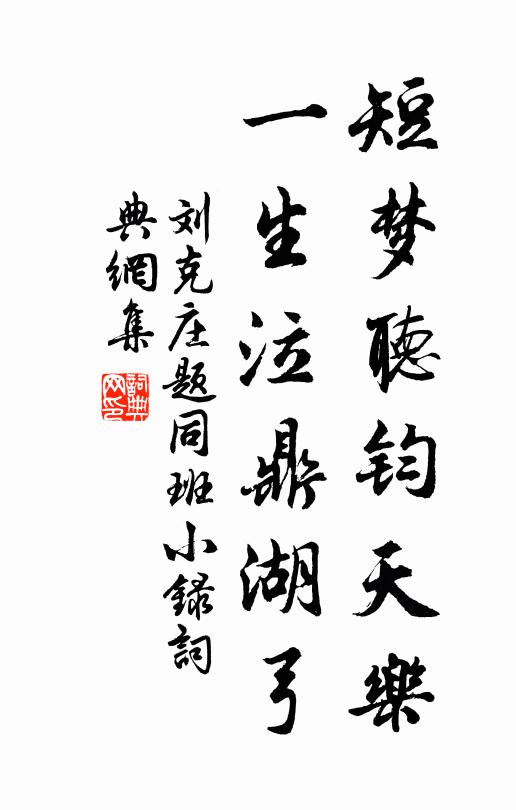 短梦聽钧天樂
一生泣鼎湖弓
刘克庄题同班小録詞
典網集
詞典
网印